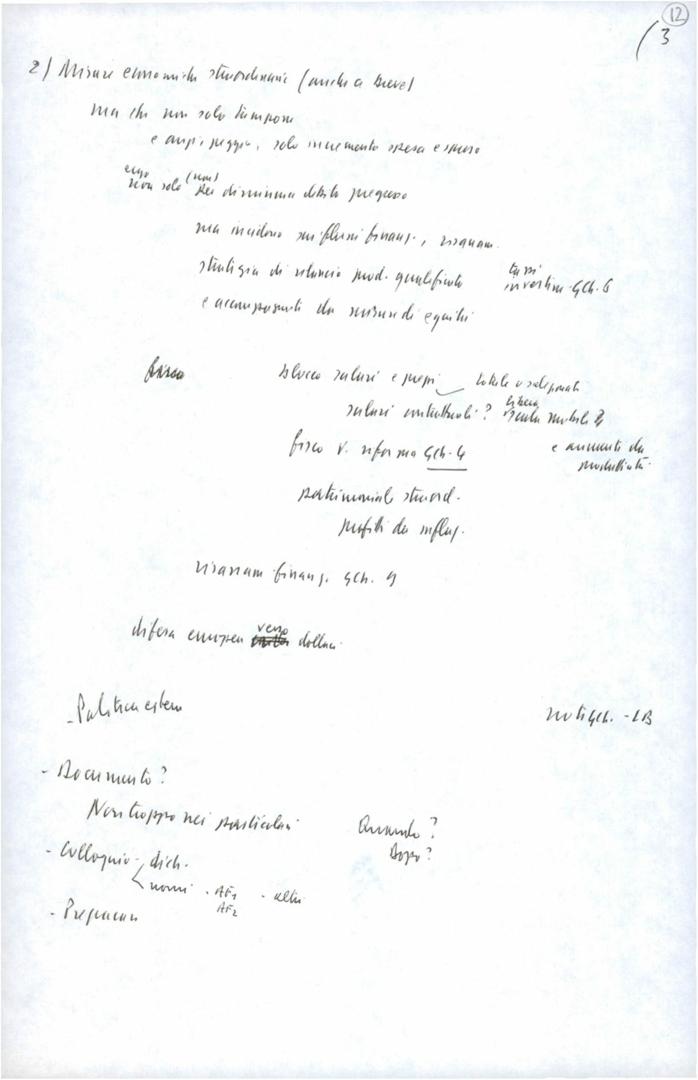 12
3
2) Misure economiche straordinarie (anche a breve)
ma che non solo tampone
e anzi, peggio, solo incremento spesa e
ergo (non)
non solo diminuiva debito pregresso
ma incidono sui flussi finanz., risanam.
strategia di rilancio prod. qualificato
tassi
investim. GCh. 6
e accompagnati da misure di equità
fisco
blocco salari e prezzi totale o
salari contrattuali? scala mobile
fisco v. riforma GCh-4
e aumenti da
produttività
patrimoniale straord.
profitti da inflaz.
risanam finanz. GCh. 9
difesa europea verso dollaro
- Politica estera
note GCh. - LB
- Documento?
Non troppo nei particolari
Quando?
Dopo?
- Colloquio - dich.
nomi - AF1 - altri
AF2
- Preparare